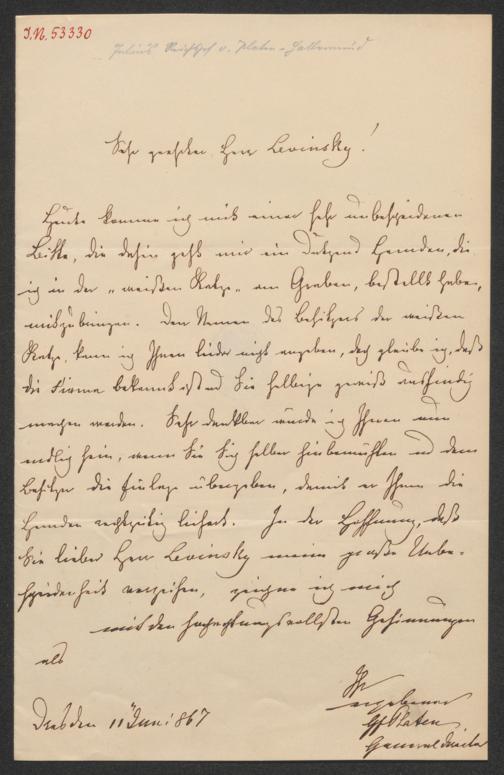 J.N. 53330
Julius Reichsgf v. Platen-Hallermund
Sehr geehrter Herr Lewinsky!
Heute komme ich mit einer sehr unbescheidenen
Bitte, die dahin geht mir ein Dutzend Hemden, die
ich in der „weißen Katze" am Graben, bestellt habe,
mitzubringen. Den Namen des Besitzers der weißen
Katze, kann ich Ihnen leider nicht angeben, doch glaube ich, daß
die Firma bekannt ist und Sie selbige gewiß ausfindig
machen werden. Sehr dankbar würde ich Ihnen nun
endlich sein, wenn Sie Sich selber hinbemühten und dem
Besitzer die Einlage übergeben, damit er Ihnen die
Hemden rechtzeitig liefert. In der Hoffnung, daß
Sie lieber Herr Lewinsky meine große Unbe-
scheidenheit verzeihen, zeichne ich mich
mit den hochachtungsvollsten Gesinnungen
als
Ihr
ergebener
Gf Platen
Generaldirector
Dresden 11 Juni 867